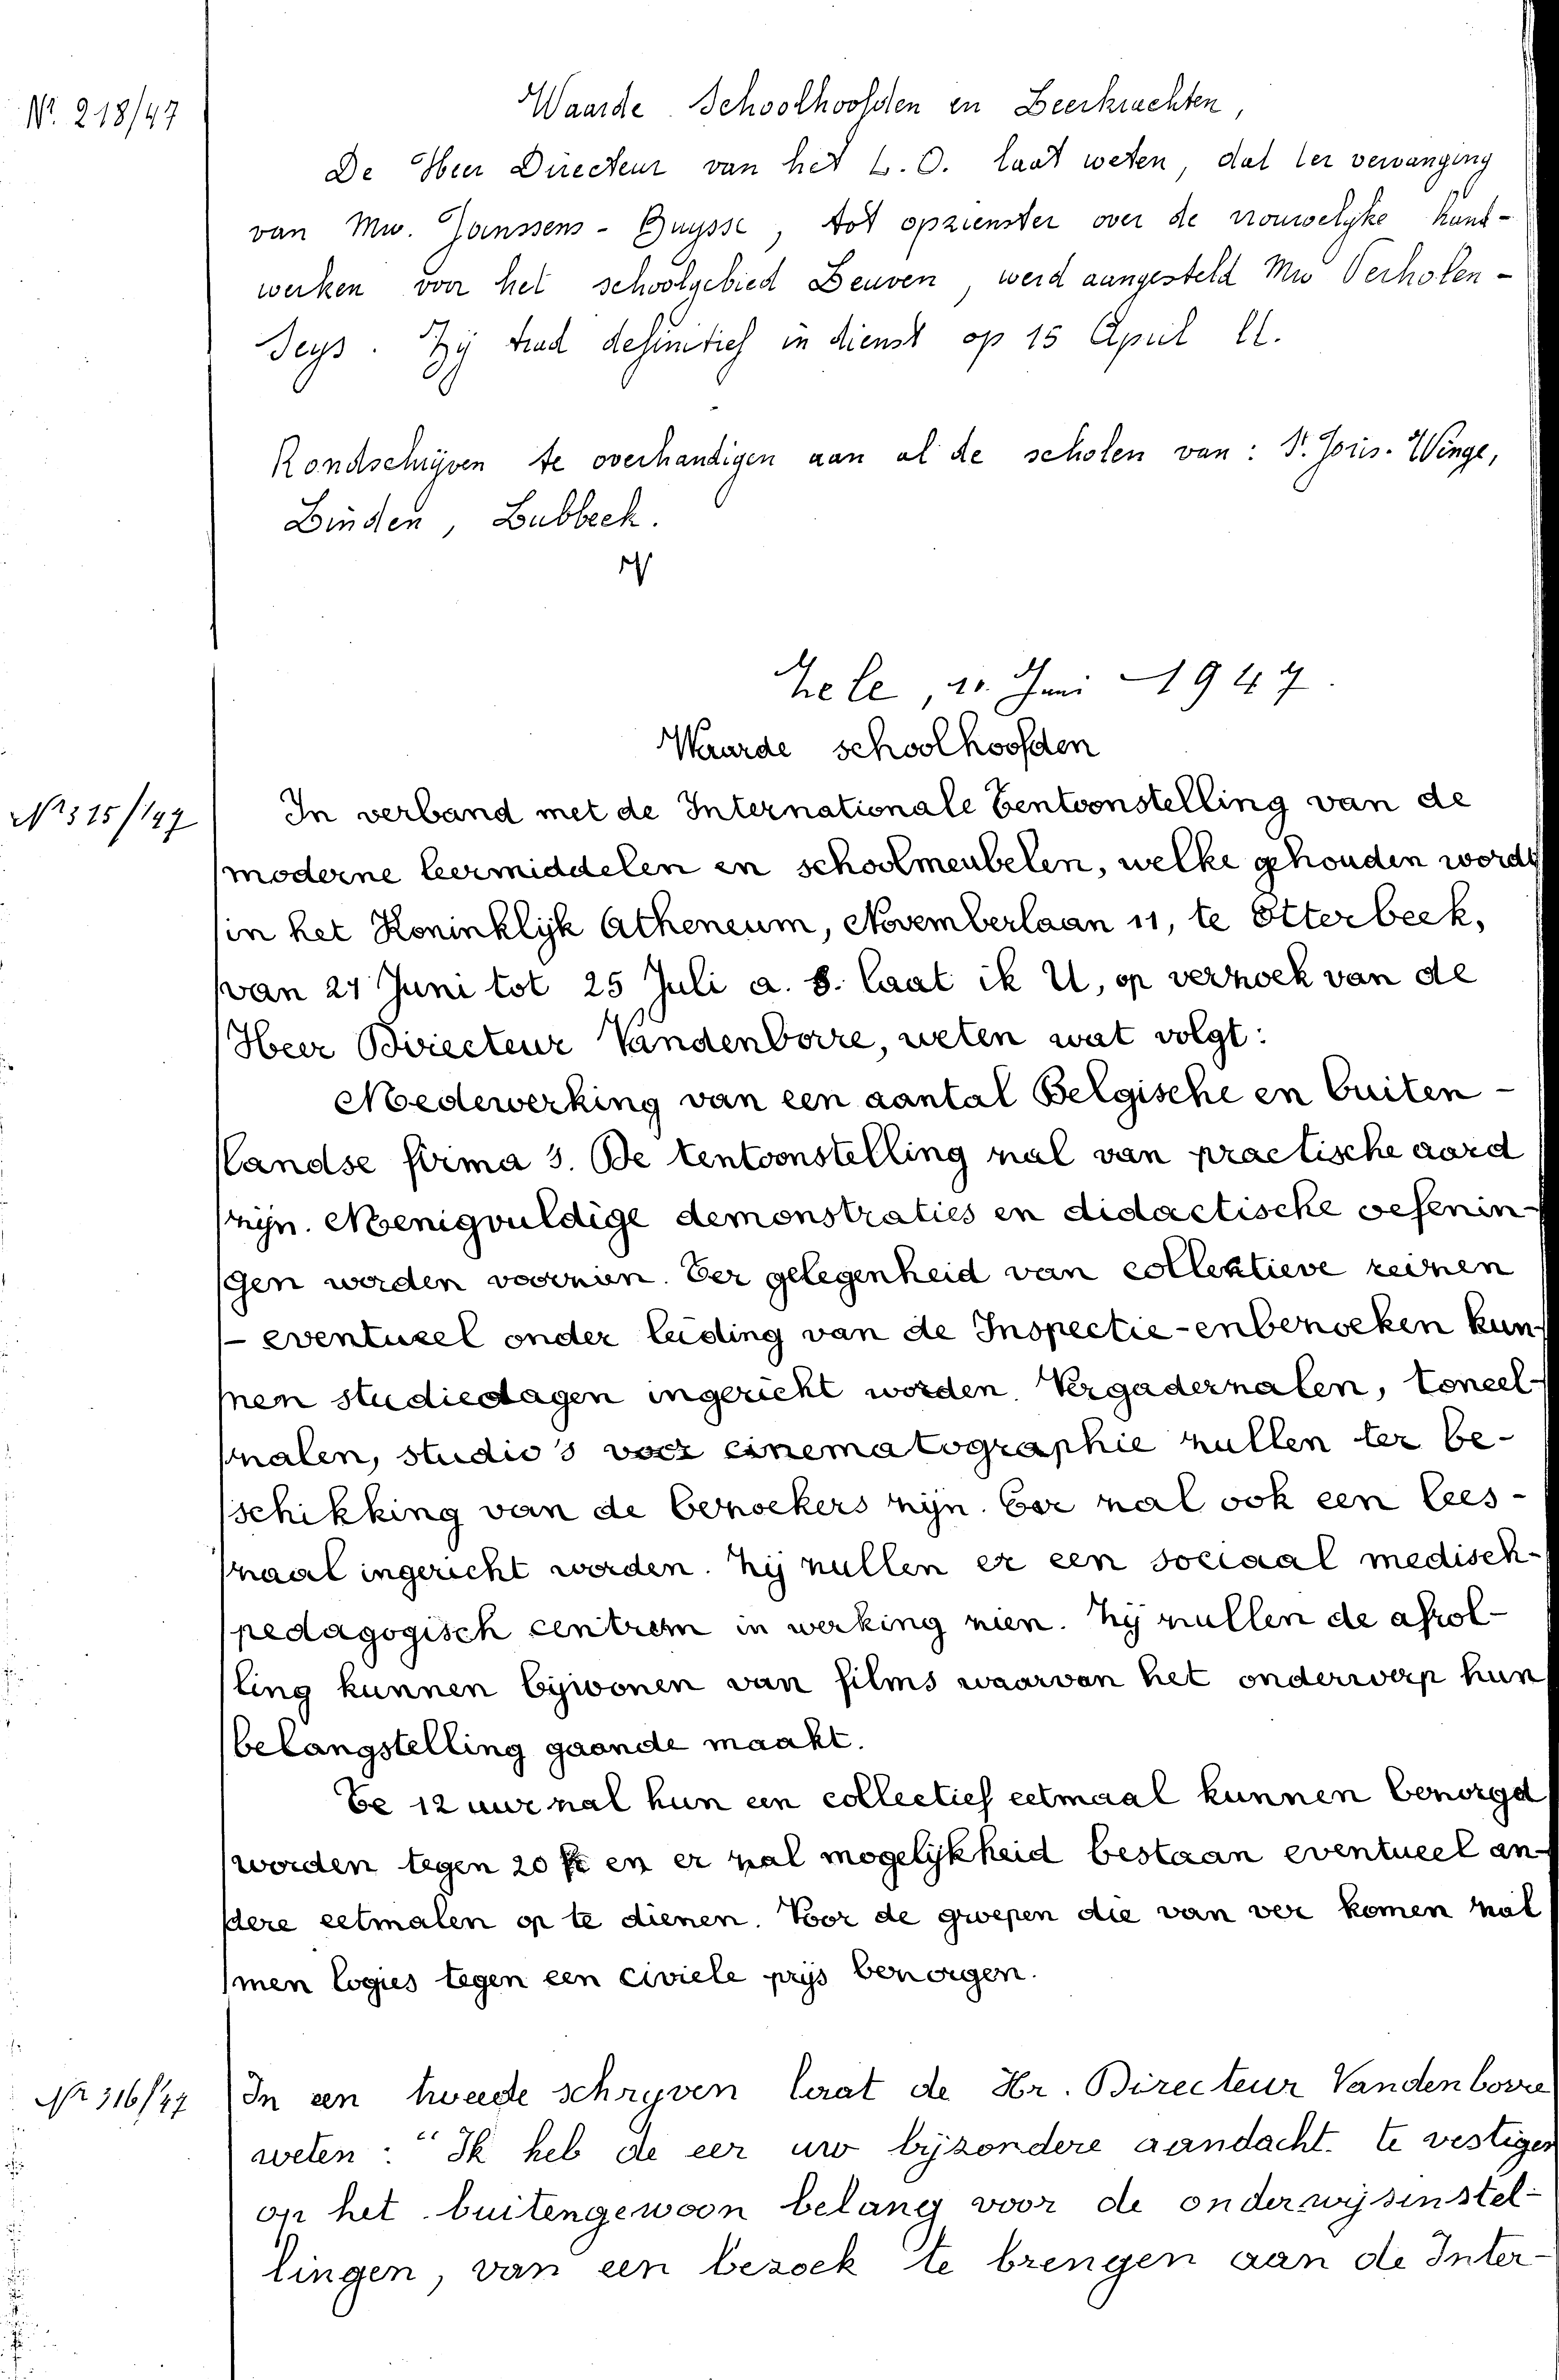 Nr. 218/47
Waarde Schoolhoofden en Leerkrachten,
De Heer Directeur van het L.O. laat weten, dat ter vervanging
van Mw. Janssens-Buysse, tot opzienster over de vrouwelyke hand-
werken voor het schoolgebied Leuven, werd aangesteld Mw Verholen-
Seys. Zij trad definitief in dienst op 15 April ll.
Rondschrijven te overhandigen aan al de scholen van: St. Joris-Winge,
Linden, Lubbeek.
20 Juni 1947.
Waarde schoolhoofden
Nr 315/147
In verband met de Internationale Tentoonstelling van de
moderne leermiddelen en schoolmeubelen, welke gehouden wordt
in het Koninklijk Atheneum, Novemberlaan 11, te Etterbeek,
van 24 Juni tot 25 Juli a. s. laat ik U, op verzoek van de
Heer Directeur Vandenborre, weten wat volgt:
Medewerking van een aantal Belgische en buiten-
landse firma's. De tentoonstelling zal van practische aard
zijn. Menigvuldige demonstraties en didactische oefenin-
gen worden voorzien. Ter gelegenheid van collektieve reizen
- eventueel onder leiding van de Inspectie - en bezoeken kun-
nen studiedagen ingericht worden. Vergaderzalen, toneel-
zalen, studio's voor cinematographie zullen ter be-
schikking van de bezoekers zijn. Er zal ook een lees-
zaal ingericht worden. Zij zullen er een sociaal medisch-
pedagogisch centrum in werking zien. Zij zullen de afrol-
ling kunnen bijwonen van films waarvan het onderwerp hun
belangstelling gaande maakt.
Te 12 uur zal hun een collectief eetmaal kunnen bezorgd
worden tegen 20 fr en er zal mogelijkheid bestaan eventueel an-
dere eetmalen op te dienen. Voor de groepen die van ver komen zal
men logies tegen een civiele prijs bezorgen.
Nr 316/47
In een tweede schryven laat de Hr. Directeur Vandenborre
weten: "Ik heb de eer uw bijzondere aandacht te vestigen
op het buitengewoon belang voor de onderwijsinstel-
lingen, van een bezoek te brengen aan de Inter-